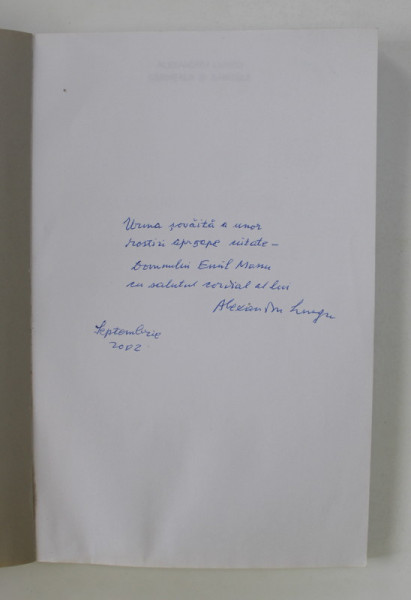 Urma șovăită a unor
rostiri aproape uitate –
Domnului Emil Manu
cu salutul cordial al lui
Alexandru Lungu
Septembrie
2002